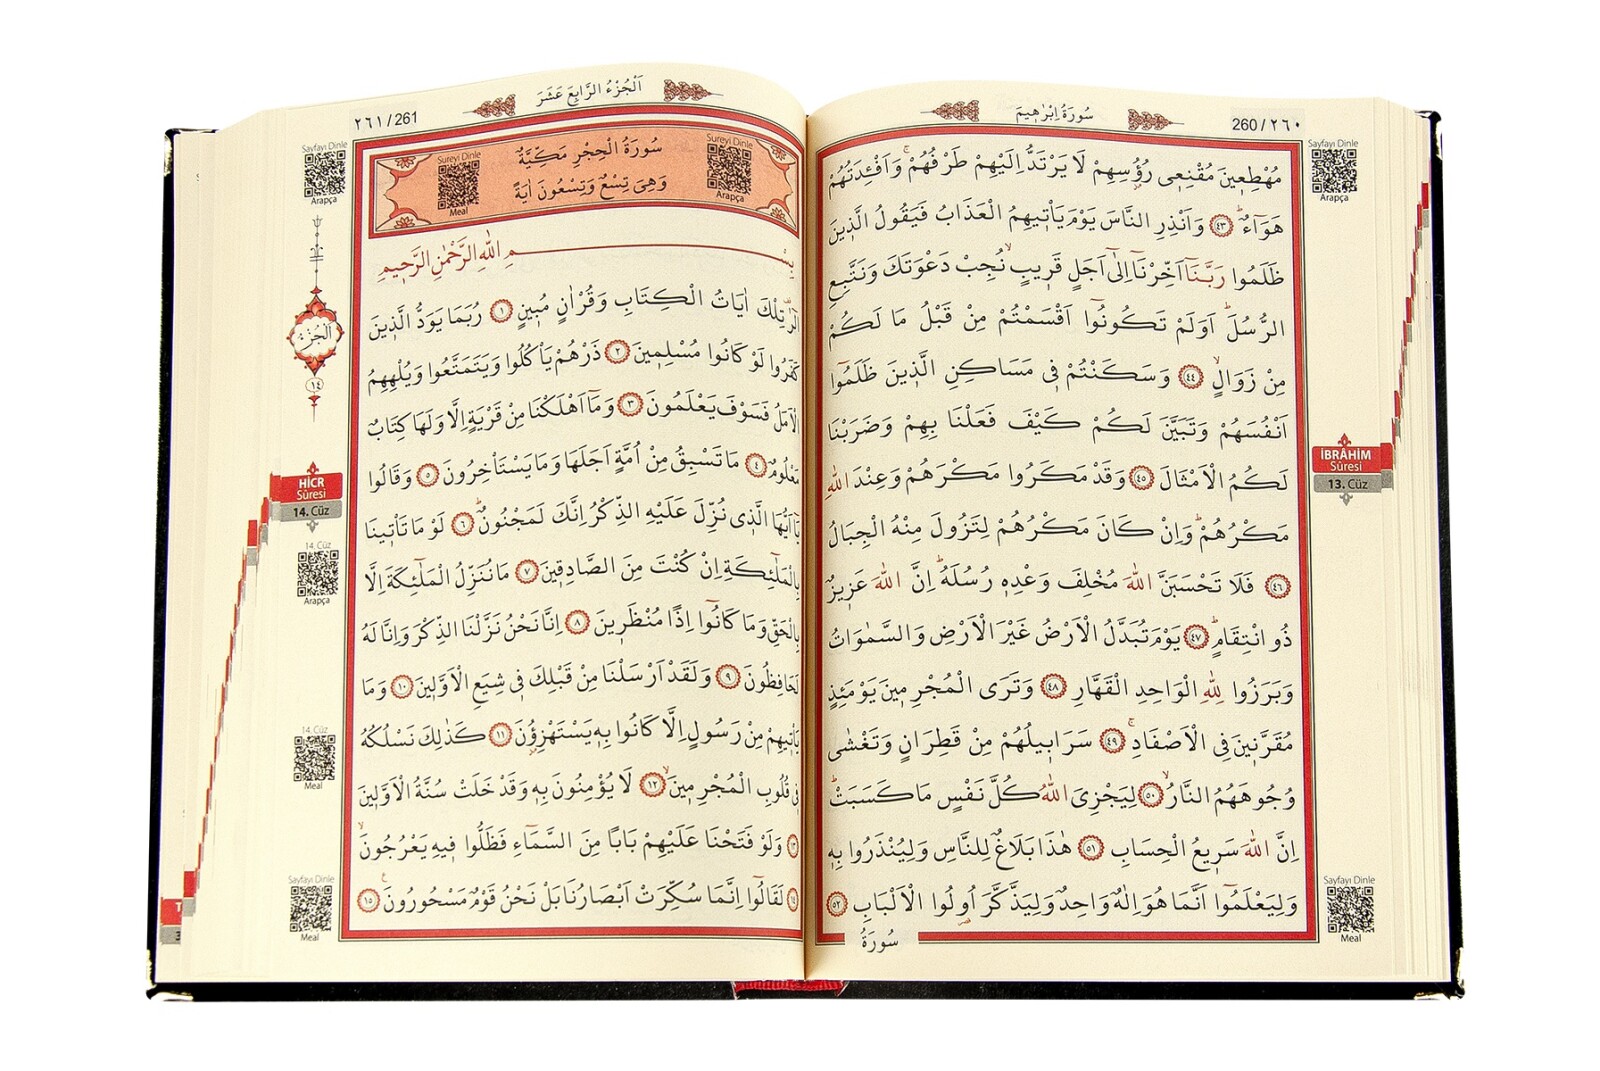 260/٢٦٠
سُورَةُ اِبْرٰهٖيمَ
Sayfayı Dinle
Arapça
مُهْطِعٖينَ مُقْنِعٖى رُؤُسِهِمْ لَا يَرْتَدُّ اِلَيْهِمْ طَرْفُهُمْۚ وَاَفْـِٔدَتُهُمْ
هَوَٓاءٌؕ ٤٣ وَاَنْذِرِ النَّاسَ يَوْمَ يَاْتٖيهِمُ الْعَذَابُ فَيَقُولُ الَّذٖينَ
ظَلَمُوا رَبَّنَٓا اَخِّرْنَٓا اِلٰٓى اَجَلٍ قَرٖيبٍۙ نُجِبْ دَعْوَتَكَ وَنَتَّبِعِ
الرُّسُلَؕ اَوَلَمْ تَكُونُٓوا اَقْسَمْتُمْ مِنْ قَبْلُ مَا لَكُمْ
مِنْ زَوَالٍۙ ٤٤ وَسَكَنْتُمْ فٖى مَسَاكِنِ الَّذٖينَ ظَلَمُٓوا
اَنْفُسَهُمْ وَتَبَيَّنَ لَكُمْ كَيْفَ فَعَلْنَا بِهِمْ وَضَرَبْنَا
لَكُمُ الْاَمْثَالَ ٤٥ وَقَدْ مَكَرُوا مَكْرَهُمْ وَعِنْدَ اللّٰهِ
مَكْرُهُمْؕ وَاِنْ كَانَ مَكْرُهُمْ لِتَزُولَ مِنْهُ الْجِبَالُ
٤٦ فَلَا تَحْسَبَنَّ اللّٰهَ مُخْلِفَ وَعْدِهٖ رُسُلَهُؕ اِنَّ اللّٰهَ عَزٖيزٌ
ذُو انْتِقَامٍؕ ٤٧ يَوْمَ تُبَدَّلُ الْاَرْضُ غَيْرَ الْاَرْضِ وَالسَّمٰوَاتُ
وَبَرَزُوا لِلّٰهِ الْوَاحِدِ الْقَهَّارِ ٤٨ وَتَرَى الْمُجْرِمٖينَ يَوْمَئِذٍ
مُقَرَّنٖينَ فِى الْاَصْفَادِۚ ٤٩ سَرَابٖيلُهُمْ مِنْ قَطِرَانٍ وَتَغْشٰى
وُجُوهَهُمُ النَّارُۙ ٥٠ لِيَجْزِىَ اللّٰهُ كُلَّ نَفْسٍ مَا كَسَبَتْؕ
اِنَّ اللّٰهَ سَرٖيعُ الْحِسَابِ ٥١ هٰذَا بَلَاغٌ لِلنَّاسِ وَلِيُنْذَرُوا بِهٖ
وَلِيَعْلَمُٓوا اَنَّمَا هُوَ اِلٰهٌ وَاحِدٌ وَلِيَذَّكَّرَ اُولُوا الْاَلْبَابِ ٥٢
سُورَةُ
İBRÂHİM
Sûresi
13. Cüz
Sayfayı Dinle
Meal
٢٦١/261
اَلْجُزْءُ الرَّابِعَ عَشَرَ
Sayfayı Dinle
Arapça
Sureyi Dinle
Arapça
Sureyi Dinle
Meal
سُورَةُ الْحِجْرِ مَكِّيَّةٌ
وَهِىَ تِسْعٌ وَتِسْعُونَ اٰيَةً
بِسْمِ اللّٰهِ الرَّحْمٰنِ الرَّحٖيمِ
الٓرٰ تِلْكَ اٰيَاتُ الْكِتَابِ وَقُرْاٰنٍ مُبٖينٍ ١ رُبَمَا يَوَدُّ الَّذٖينَ
كَفَرُوا لَوْ كَانُوا مُسْلِمٖينَ ٢ ذَرْهُمْ يَاْكُلُوا وَيَتَمَتَّعُوا وَيُلْهِهِمُ
الْاَمَلُ فَسَوْفَ يَعْلَمُونَ ٣ وَمَٓا اَهْلَكْنَا مِنْ قَرْيَةٍ اِلَّا وَلَهَا كِتَابٌ
مَعْلُومٌ ٤ مَا تَسْبِقُ مِنْ اُمَّةٍ اَجَلَهَا وَمَا يَسْتَاْخِرُونَ ٥ وَقَالُوا
يَٓا اَيُّهَا الَّذٖى نُزِّلَ عَلَيْهِ الذِّكْرُ اِنَّكَ لَمَجْنُونٌؕ ٦ لَوْ مَا تَاْتٖينَا
بِالْمَلٰٓئِكَةِ اِنْ كُنْتَ مِنَ الصَّادِقٖينَ ٧ مَا نُنَزِّلُ الْمَلٰٓئِكَةَ اِلَّا
بِالْحَقِّ وَمَا كَانُٓوا اِذًا مُنْظَرٖينَ ٨ اِنَّا نَحْنُ نَزَّلْنَا الذِّكْرَ وَاِنَّا لَهُ
لَحَافِظُونَ ٩ وَلَقَدْ اَرْسَلْنَا مِنْ قَبْلِكَ فٖى شِيَعِ الْاَوَّلٖينَ ١٠ وَمَا
يَاْتٖيهِمْ مِنْ رَسُولٍ اِلَّا كَانُوا بِهٖ يَسْتَهْزِؤُنَ ١١ كَذٰلِكَ نَسْلُكُهُ
فٖى قُلُوبِ الْمُجْرِمٖينَۙ ١٢ لَا يُؤْمِنُونَ بِهٖ وَقَدْ خَلَتْ سُنَّةُ الْاَوَّلٖينَ
١٣ وَلَوْ فَتَحْنَا عَلَيْهِمْ بَابًا مِنَ السَّمَٓاءِ فَظَلُّوا فٖيهِ يَعْرُجُونَۙ
١٤ لَقَالُٓوا اِنَّمَا سُكِّرَتْ اَبْصَارُنَا بَلْ نَحْنُ قَوْمٌ مَسْحُورُونَࣖ ١٥
اَلْجُزْءُ
١٤
HİCR
Sûresi
14. Cüz
14. Cüz
Arapça
14. Cüz
Meal
Sayfayı Dinle
Meal